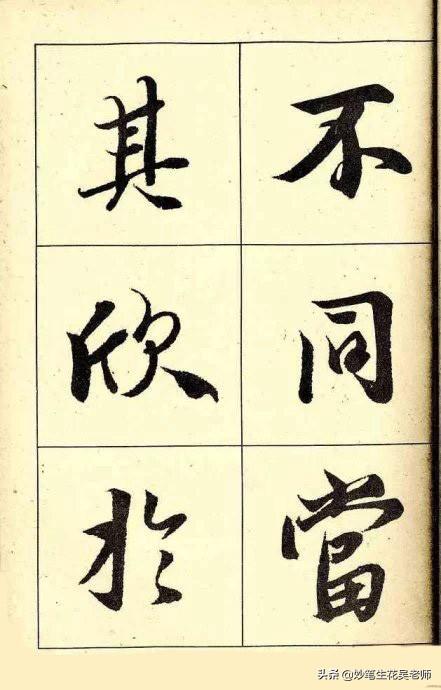 不同當
其欣於
头条 @妙笔生花吴老师